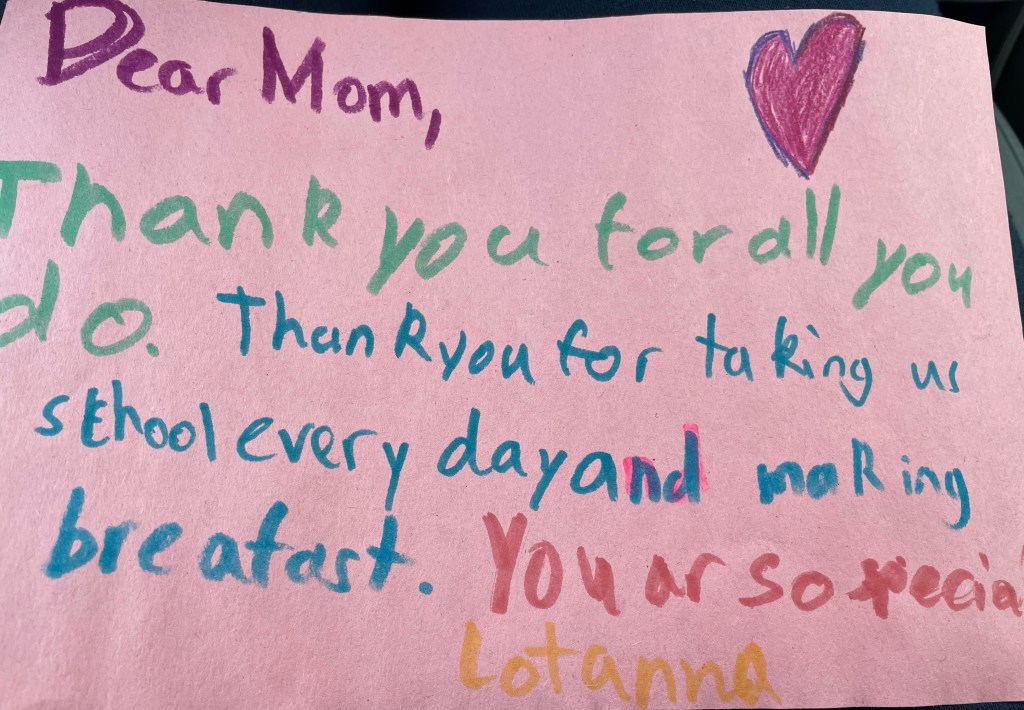 Dear Mom,
Thank you for all you
do. Thank you for taking us
school every day and making
breafast. You ar so special
Lotanna